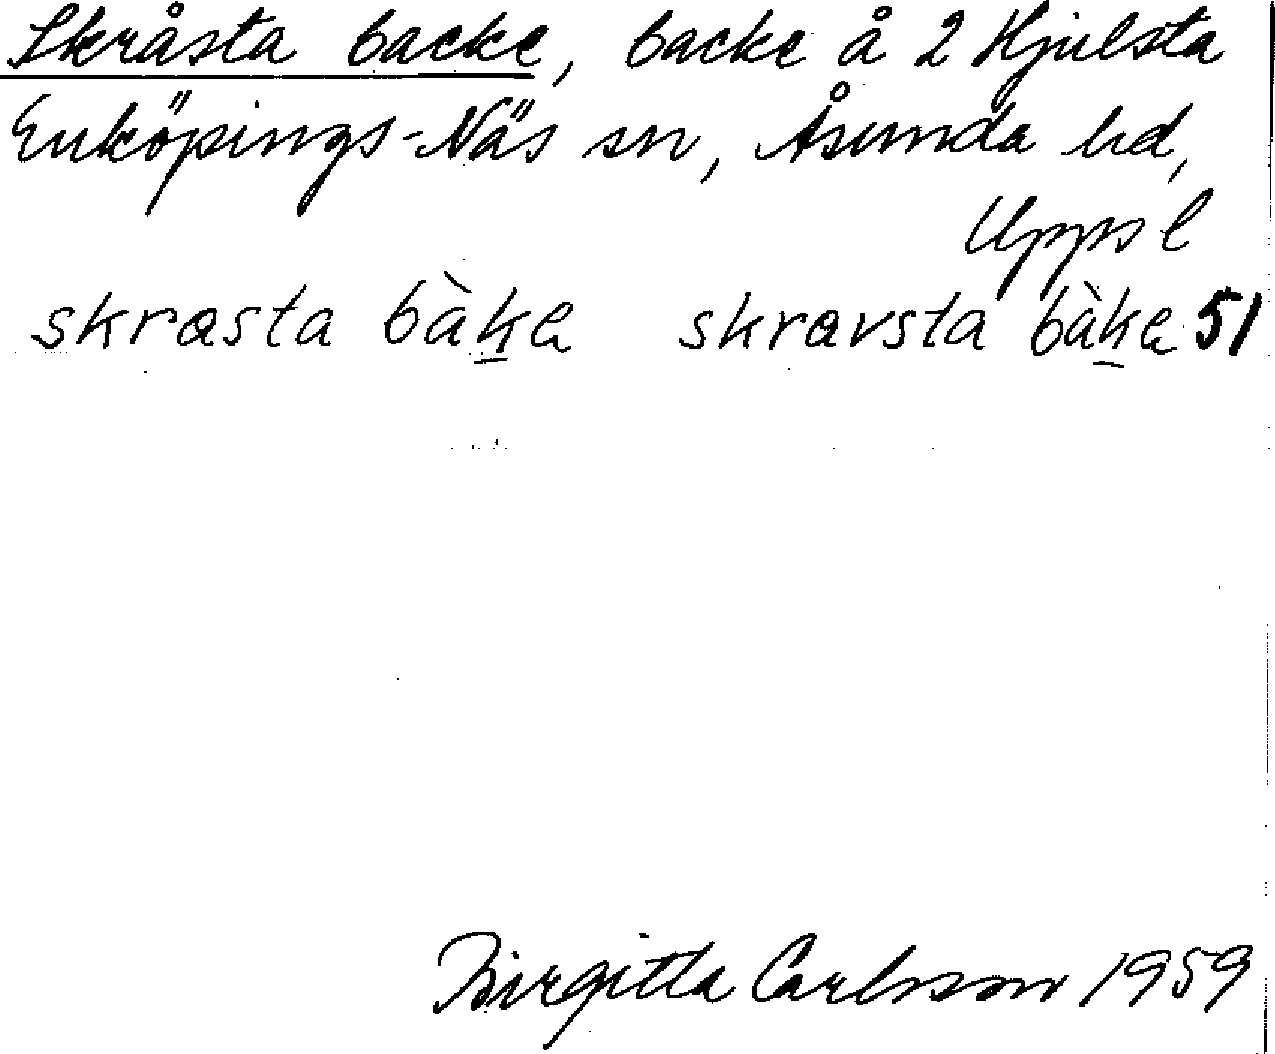 Skråsta backe, backe å 2 Hjulsta
Enköpings-Näs sn, Åsunda hd,
Upps l
skrɑsta bàk̲e skrɑvsta bàk̲e 51
Birgitta Carlsson 1959